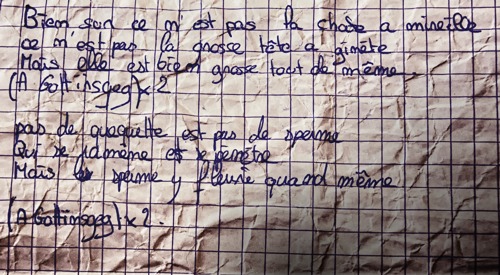 Bien sur ce n'est pas la chose a mineille
ce n'est pas la grosse tête a ginête
Mais elle est bien grosse tout de même
(A Gottinsgeg) x 2
pas de quequette est pas de sperme
Qui se ramène et se penètre
Mais le sperme y fleurie quand même
(A Gottinsgeg) x 2.